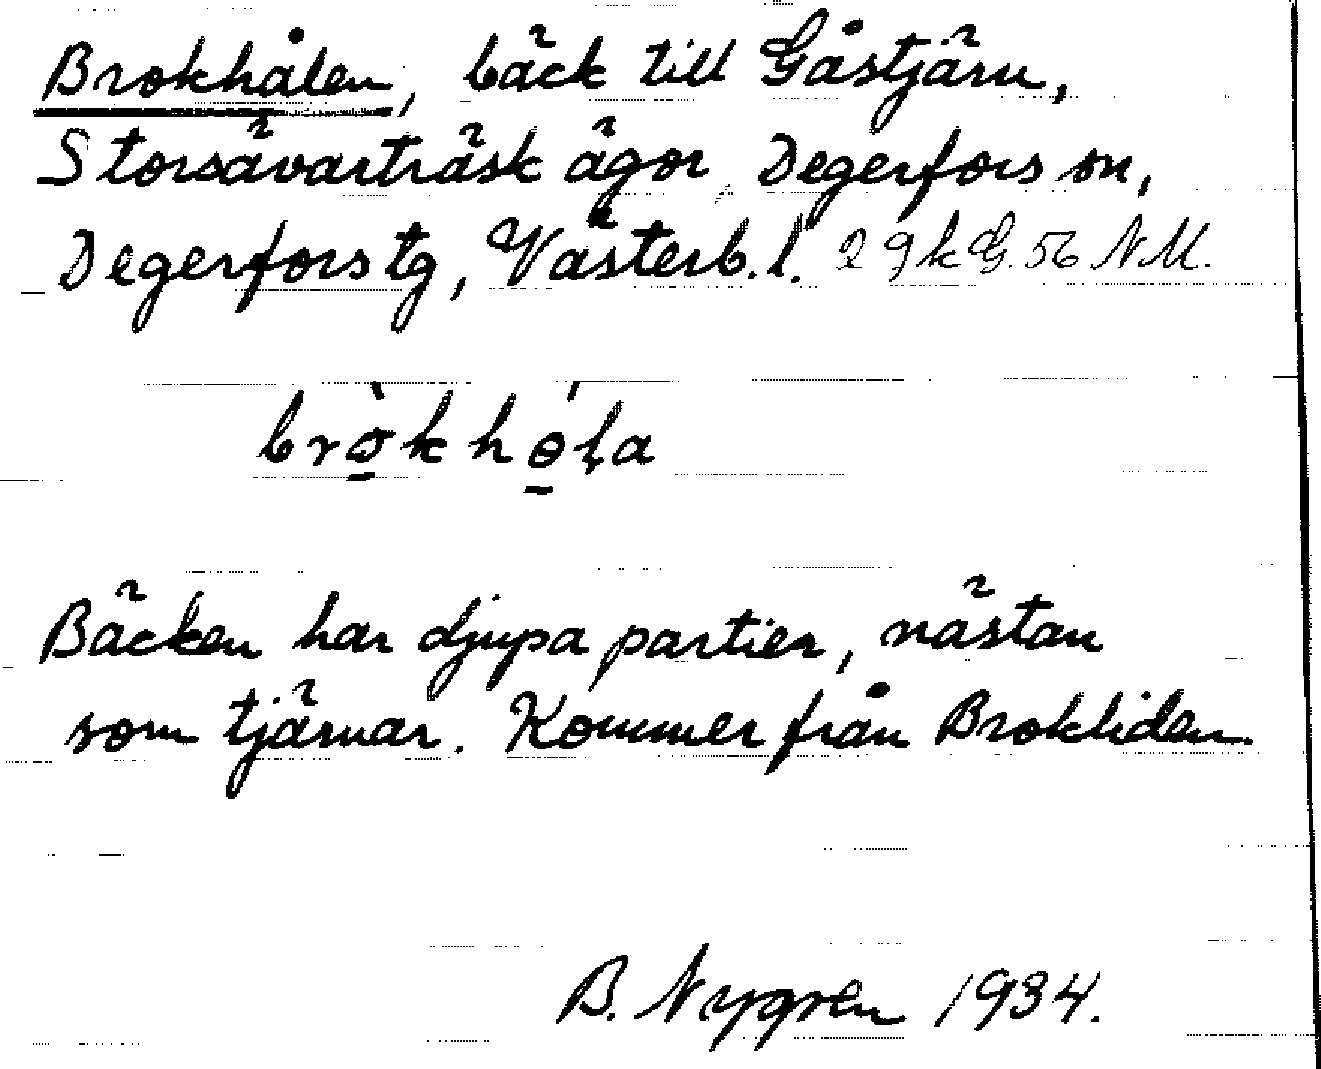 Brokhålen, bäck till Gåstjärn,
Storsävarträsk ägor, Degerfors sn,
Degerfors tg, Västerb. l. 29 k G. 56 NM.
bròkhǿļa
Bäcken har djupa partier, nästan
som tjärnar. Kommer från Brokliden.
B. Nygren 1934.